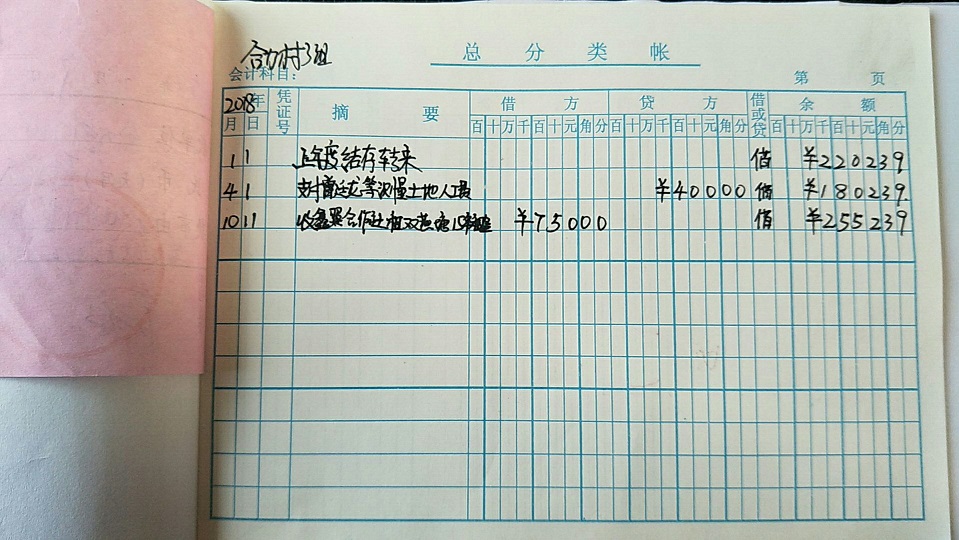 合力村3组
总分类帐
会计科目:
第 页
2018年 凭证号 摘要 借方 贷方 借或贷 余额
月 日 百十万千百十元角分 百十万千百十元角分 百十万千百十元角分
1 1 上年度结存转来 借 ¥220239
4 1 支付 等 土地人工费 ¥40000 借 ¥180239
10 11 收 合作社 ¥75000 借 ¥255239